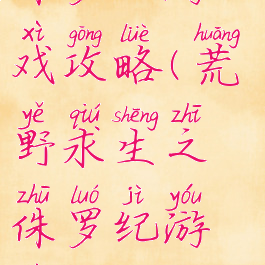 xì gōng lüè huāng
戏攻略(荒
yě qiú shēng zhī
野求生之
zhū luó jì yóu
侏罗纪游